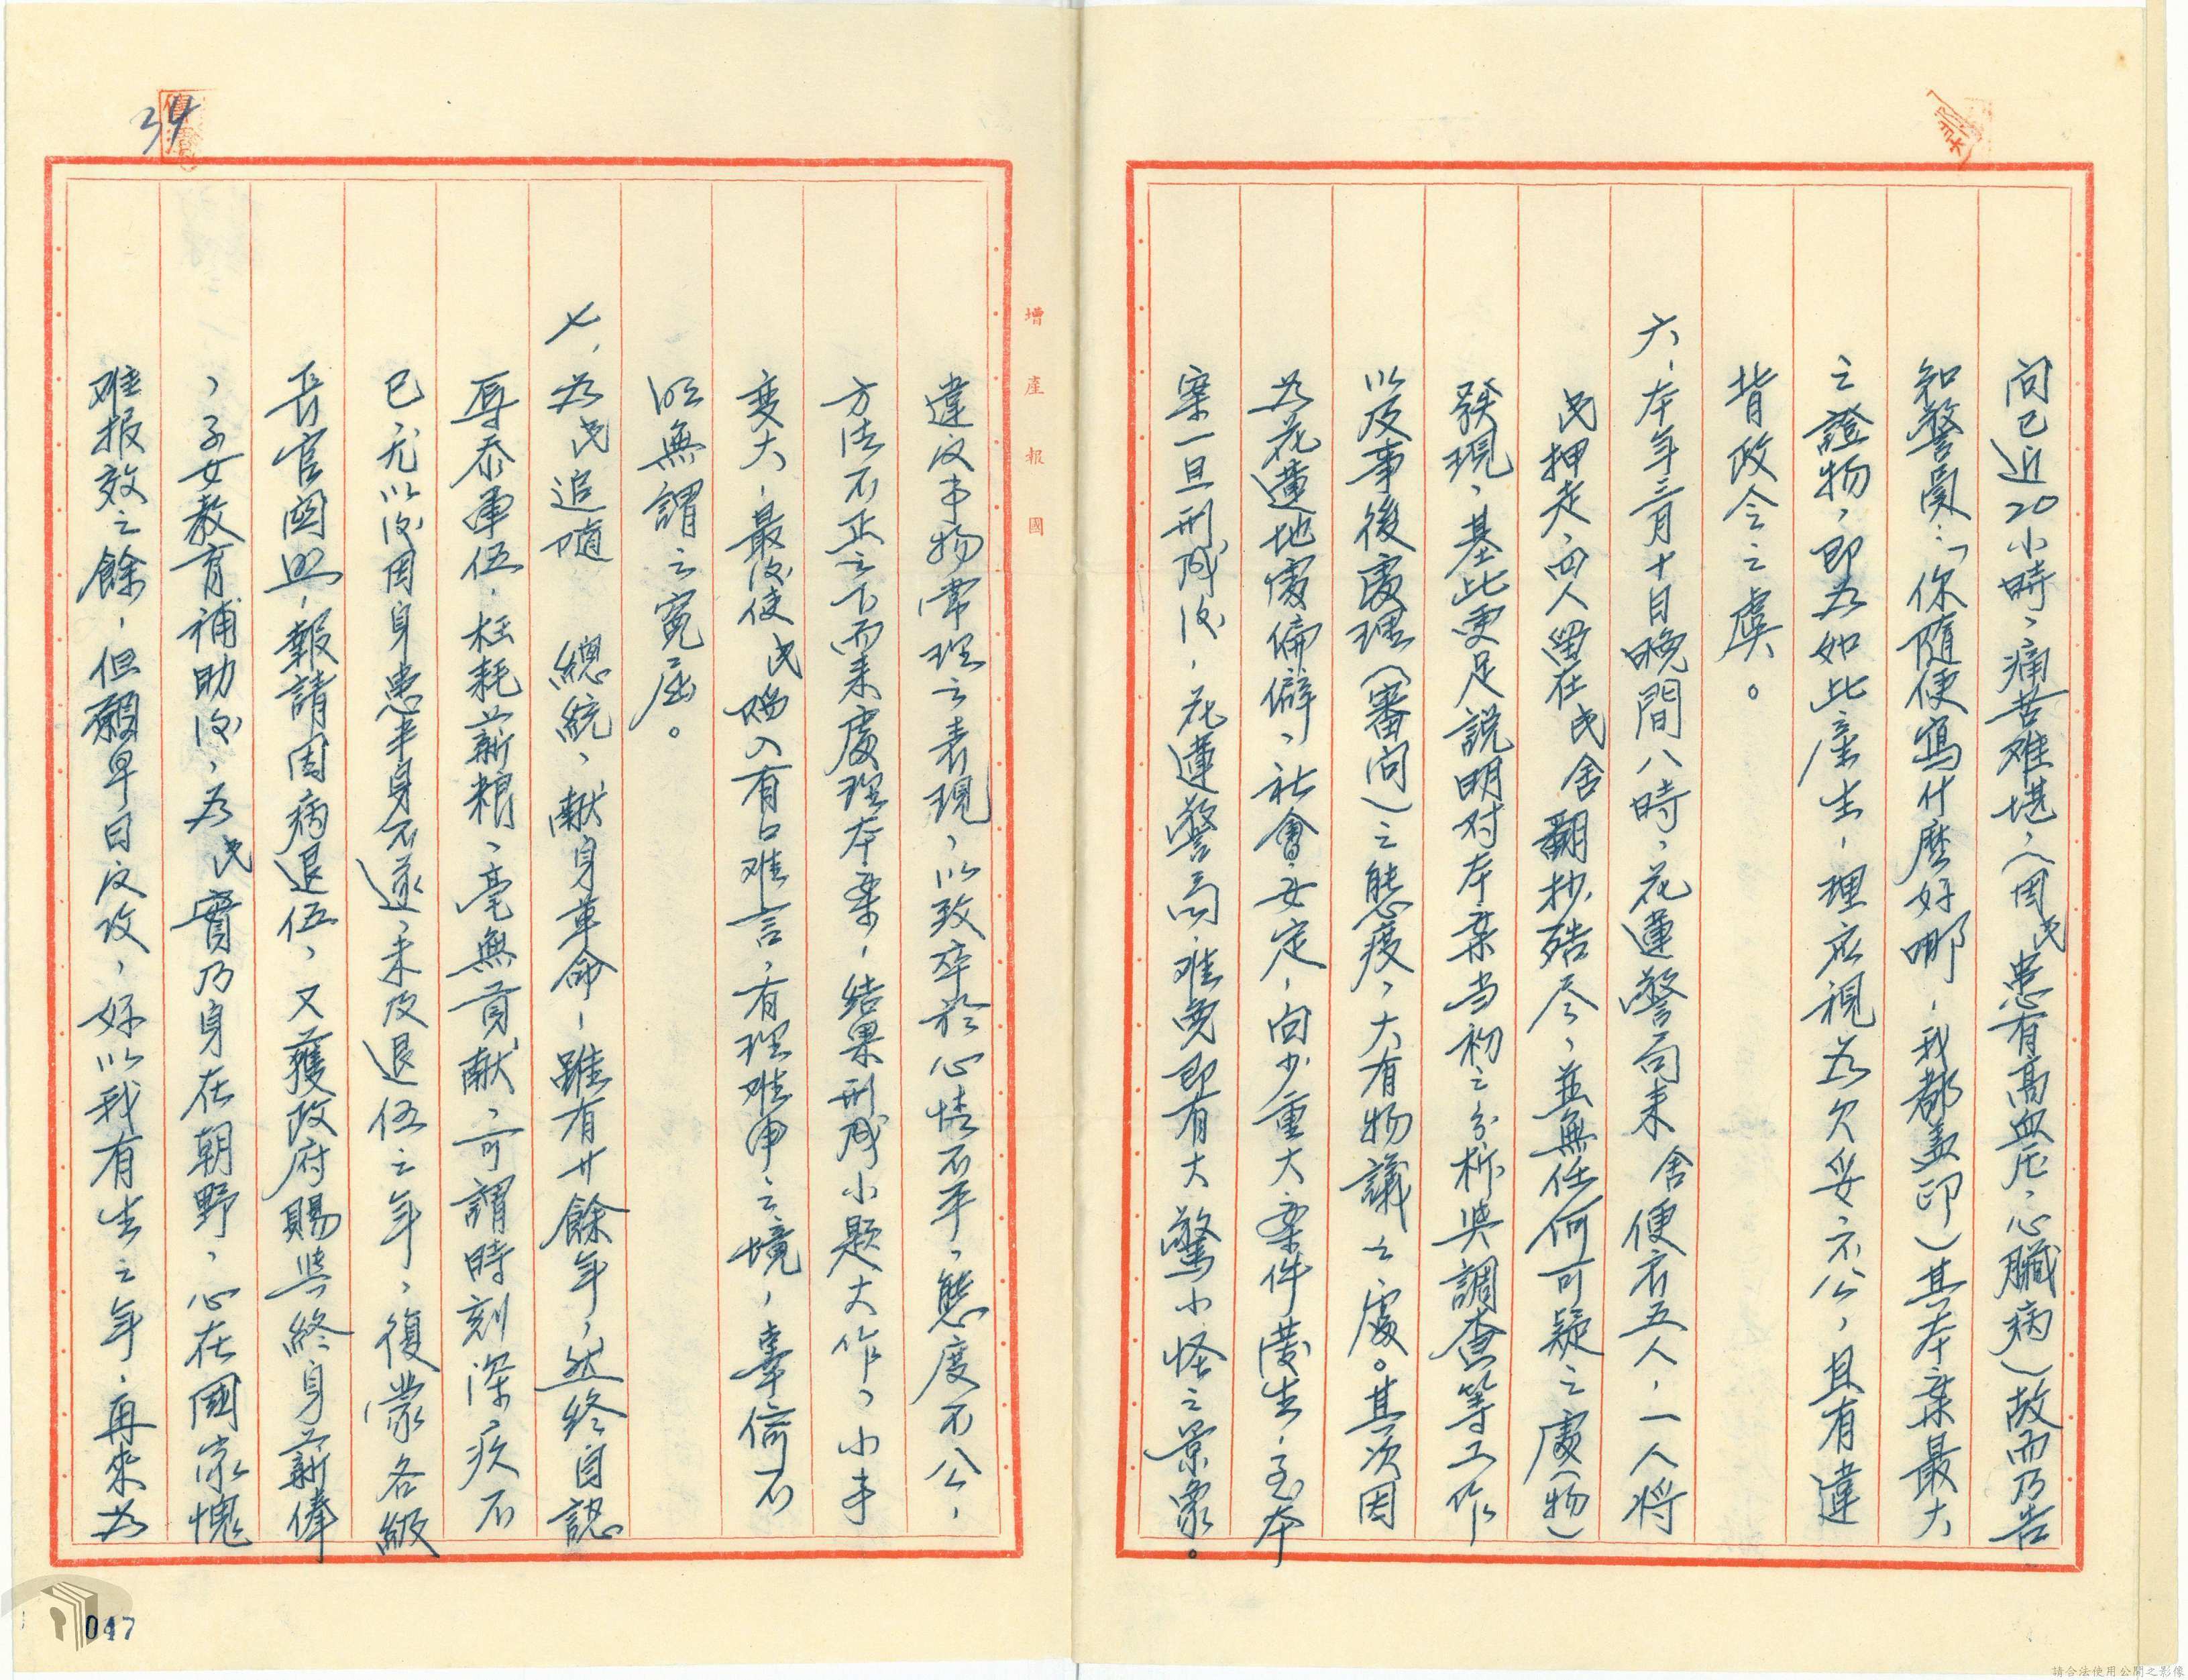 问已近20小時，痛苦难堪，(因民患有高血压，心臟病)故而乃告
知警员：「你隨便寫什麼好哪，我都盖印)其本案最大
之證物，即为如此產生，理应視为欠妥不公，且有違
背政令之虞。
六，本年三月十日晚間八時，花蓮警局来 舍便衣五人，一人将
民押走，四人留在民舍翻抄殆尽，並無任何可疑之處(物)
發現，基此更足説明对本案当初之分析与調查等工作
以及事後處理(審问)之態度，大有物議之處。其次因
为花蓮地處偏僻，社會安定，向少重大案件發生，至本
案一旦形成後，花蓮警局难免即有大驚小怪之景象。
增產報國
違反事物常理之表現，以致卒於心情不平，態度不公，
方法不正之下而来處理本案，結果形成小题大作，小事
变大，最後使民陷入有口难言，有理难申之境，辜倚不
以無謂之冤屈。
七，为民追隨 總統，献身革命，雖有廿餘年，然终自認
辱忝軍伍，枉耗薪粮，毫無貢献，可謂時刻深疚不
已，尤以後因身患半身不遂，未及退伍之年，復蒙各級
長官関照，報請因病退伍，又獲政府賜与終身薪俸
，子女教育補助後，为民實乃身在朝野，心在國家愧
难报效之餘，但願早日反攻，好以我有生之年，再來为
34
047
請合法使用公開之影像